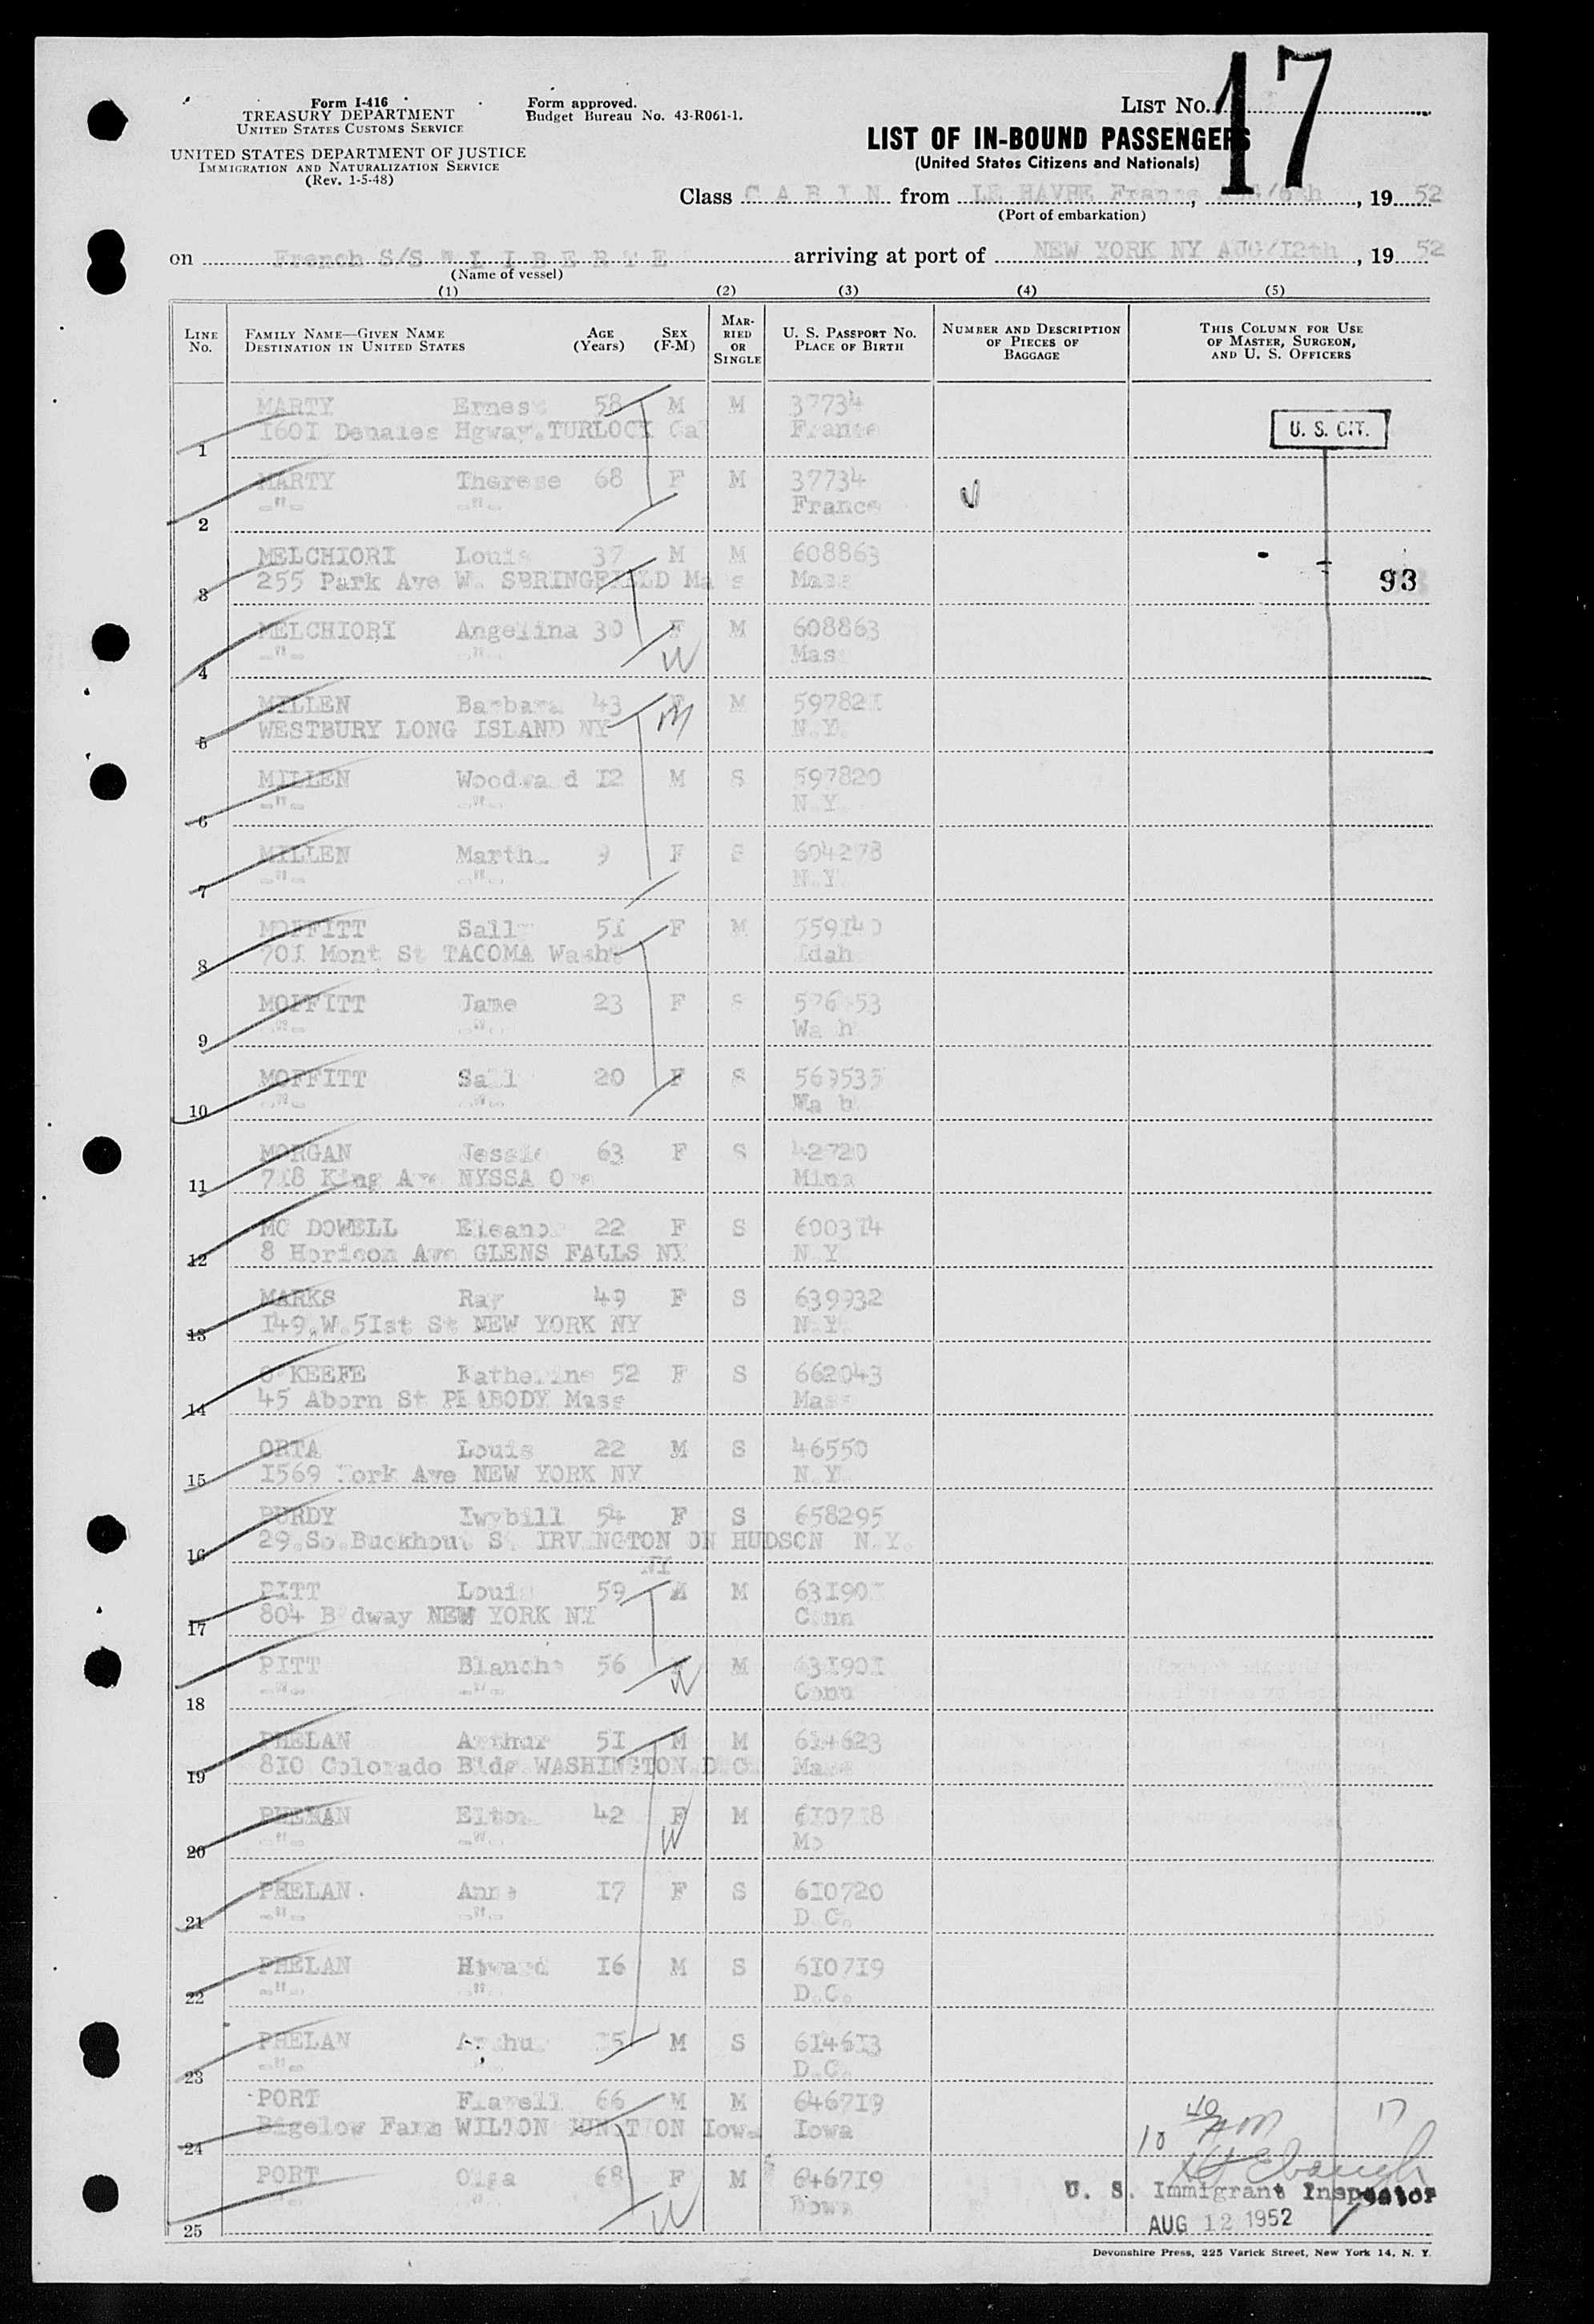 Form I-416
TREASURY DEPARTMENT
UNITED STATES CUSTOMS SERVICE
UNITED STATES DEPARTMENT OF JUSTICE
IMMIGRATION AND NATURALIZATION SERVICE
(Rev. 1-5-48)
Form approved.
Budget Bureau No. 43-R061-1.
LIST NO. 17
LIST OF IN-BOUND PASSENGERS
(United States Citizens and Nationals)
Class C A B I N from LE HAVRE France, /6th, 19 52
(Port of embarkation)
on French S/S " L I B E R T E arriving at port of NEW YORK NY AUG/12th, 19 52
(Name of vessel)
(1) (2) (3) (4) (5)
LINE NO.
FAMILY NAME—GIVEN NAME
DESTINATION IN UNITED STATES
AGE (Years)
SEX (F-M)
MARRIED OR SINGLE
U. S. PASSPORT NO.
PLACE OF BIRTH
NUMBER AND DESCRIPTION OF PIECES OF BAGGAGE
THIS COLUMN FOR USE OF MASTER, SURGEON, AND U. S. OFFICERS
MARTY Ernest 58 M M 37734
1 1601 Hgway.TURLOCK Cal France
U. S. CIT.
MARTY Therese 68 F M 37734
2 -"- -"- France
MELCHIORI Louis 37 M M 608863
3 255 Park Ave W. SPRINGFIELD Mass Mass
93
MELCHIORI Angelina 30 F M 608863
4 -"- -"- Mas
W
MILLEN Barbara 43 F M 597821
5 WESTBURY LONG ISLAND NY N.Y.
M
MILLEN Woodward 12 M S 597820
6 -"- -"- N.Y.
MILLEN Martha 9 F S 604278
7 -"- -"- N.Y.
MOFFITT Sally 51 F M 559140
8 701 Mont St TACOMA Wash Idah
MOFFITT Jame 23 F S
9 -"- -"- Wash
MOFFITT Sall 20 F S 569535
10 -"- -"- Wash
MORGAN Jessie 63 F S 42720
11 718 King Ave NYSSA Ore Minn
MC DOWELL Eleanor 22 F S 600374
12 8 Horicon Ave GLENS FALLS NY N.Y
MARKS Ray 49 F S 639932
13 149.W.51st St NEW YORK NY N.Y.
O'KEEFE Katherine 52 F S 662043
14 45 Aborn St PEABODY Mass Mass
ORTA Louis 22 M S 46550
15 1569 York Ave NEW YORK NY N.Y.
PURDY Iwybill 54 F S 658295
16 29.So.Buckhout St. IRVINGTON ON HUDSON N.Y.
NY
PITT Louis 59 M M 631901
17 804 Bdway NEW YORK NY Conn
PITT Blanche 56 F M 631901
18 -"- -"- Conn
W
PHELAN Arthur 51 M M 614623
19 810 Colorado Bldg WASHINGTON.D.C. Mass
PHELAN Elton 42 F M 610718
20 -"- -"- Mo
W
PHELAN. Anne 17 F S 610720
21 -"- -"- D.C.
PHELAN Howard 16 M S 610719
22 -"- " D.C.
PHELAN Arthur 15 M S 614613
23 -"- D.C.
PORT Flavell 66 M M 646719
24 Bigelow Farm WILTON JUNCTION Iowa Iowa
PORT Olga 68 F M 646719
25 -"- " Iowa
W
10 40 AM 17
U. S. Immigrant Inspector
AUG 12 1952
Devonshire Press, 225 Varick Street, New York 14, N. Y.